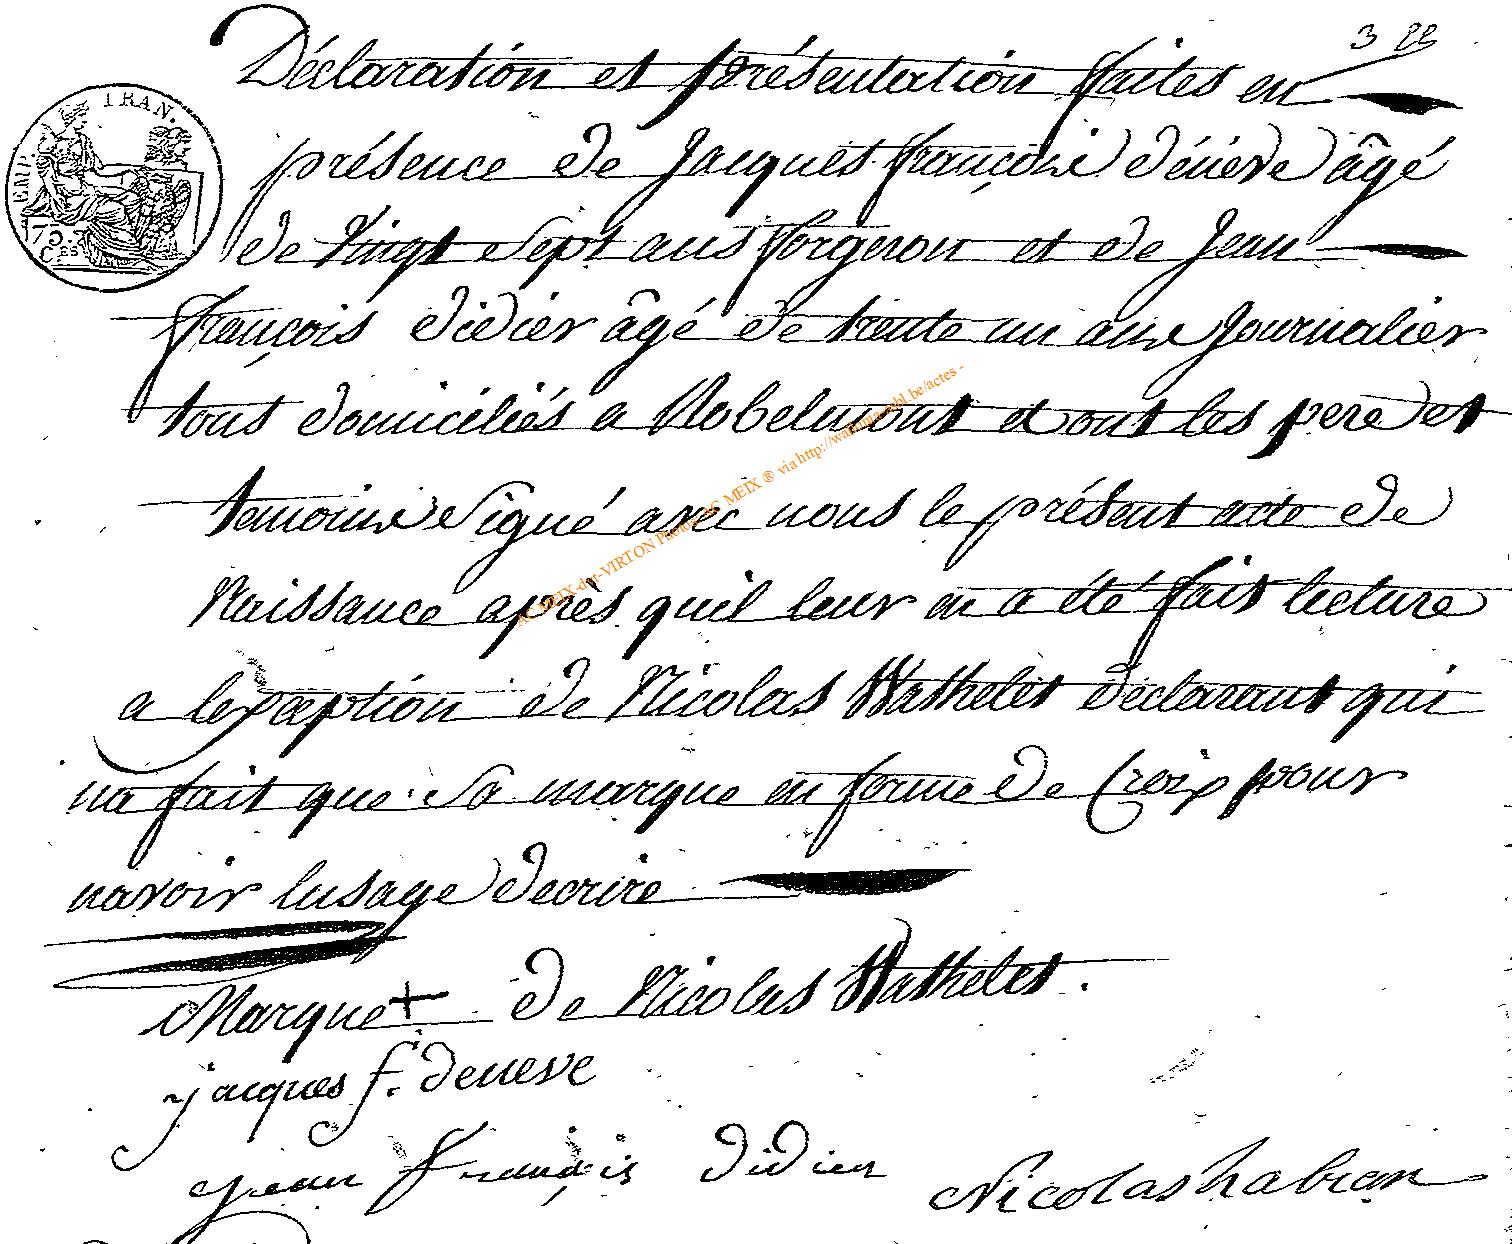 3 22
Déclaration et présentation faites en
EMP. FRAN.
75
C.ES
présence de Jacques françois dénève âgé
de vingt sept ans forgeron et de Jean
françois didier âgé de trente un ans Journalier
tous domiciliés a Robelmont dont les pere et
temoins Signé avec nous le présent acte de
Naissance après quil leur en a été fait lecture
a lexception de Nicolas Wathelet déclarant qui
na fait que sa marque en forme de Croix pour
navoir lusage decrire
Marque + de Nicolas Wathelet.
jacques f. deneve
jean françois didier Nicolas habran
AC MEIX-dvt-VIRTON MEIX ® via be/actes -